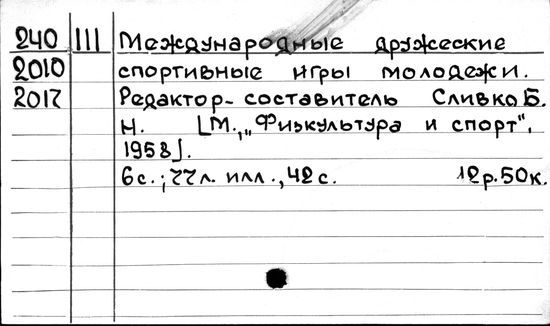 240 III Международные дружеские
2010 спортивные игры молодежи.
2017 Редактор-составитель Сливко Б.
Н. [М., „Физкультура и спорт",
1958].
6с.; 77л. илл., 42с. 12р.50к.